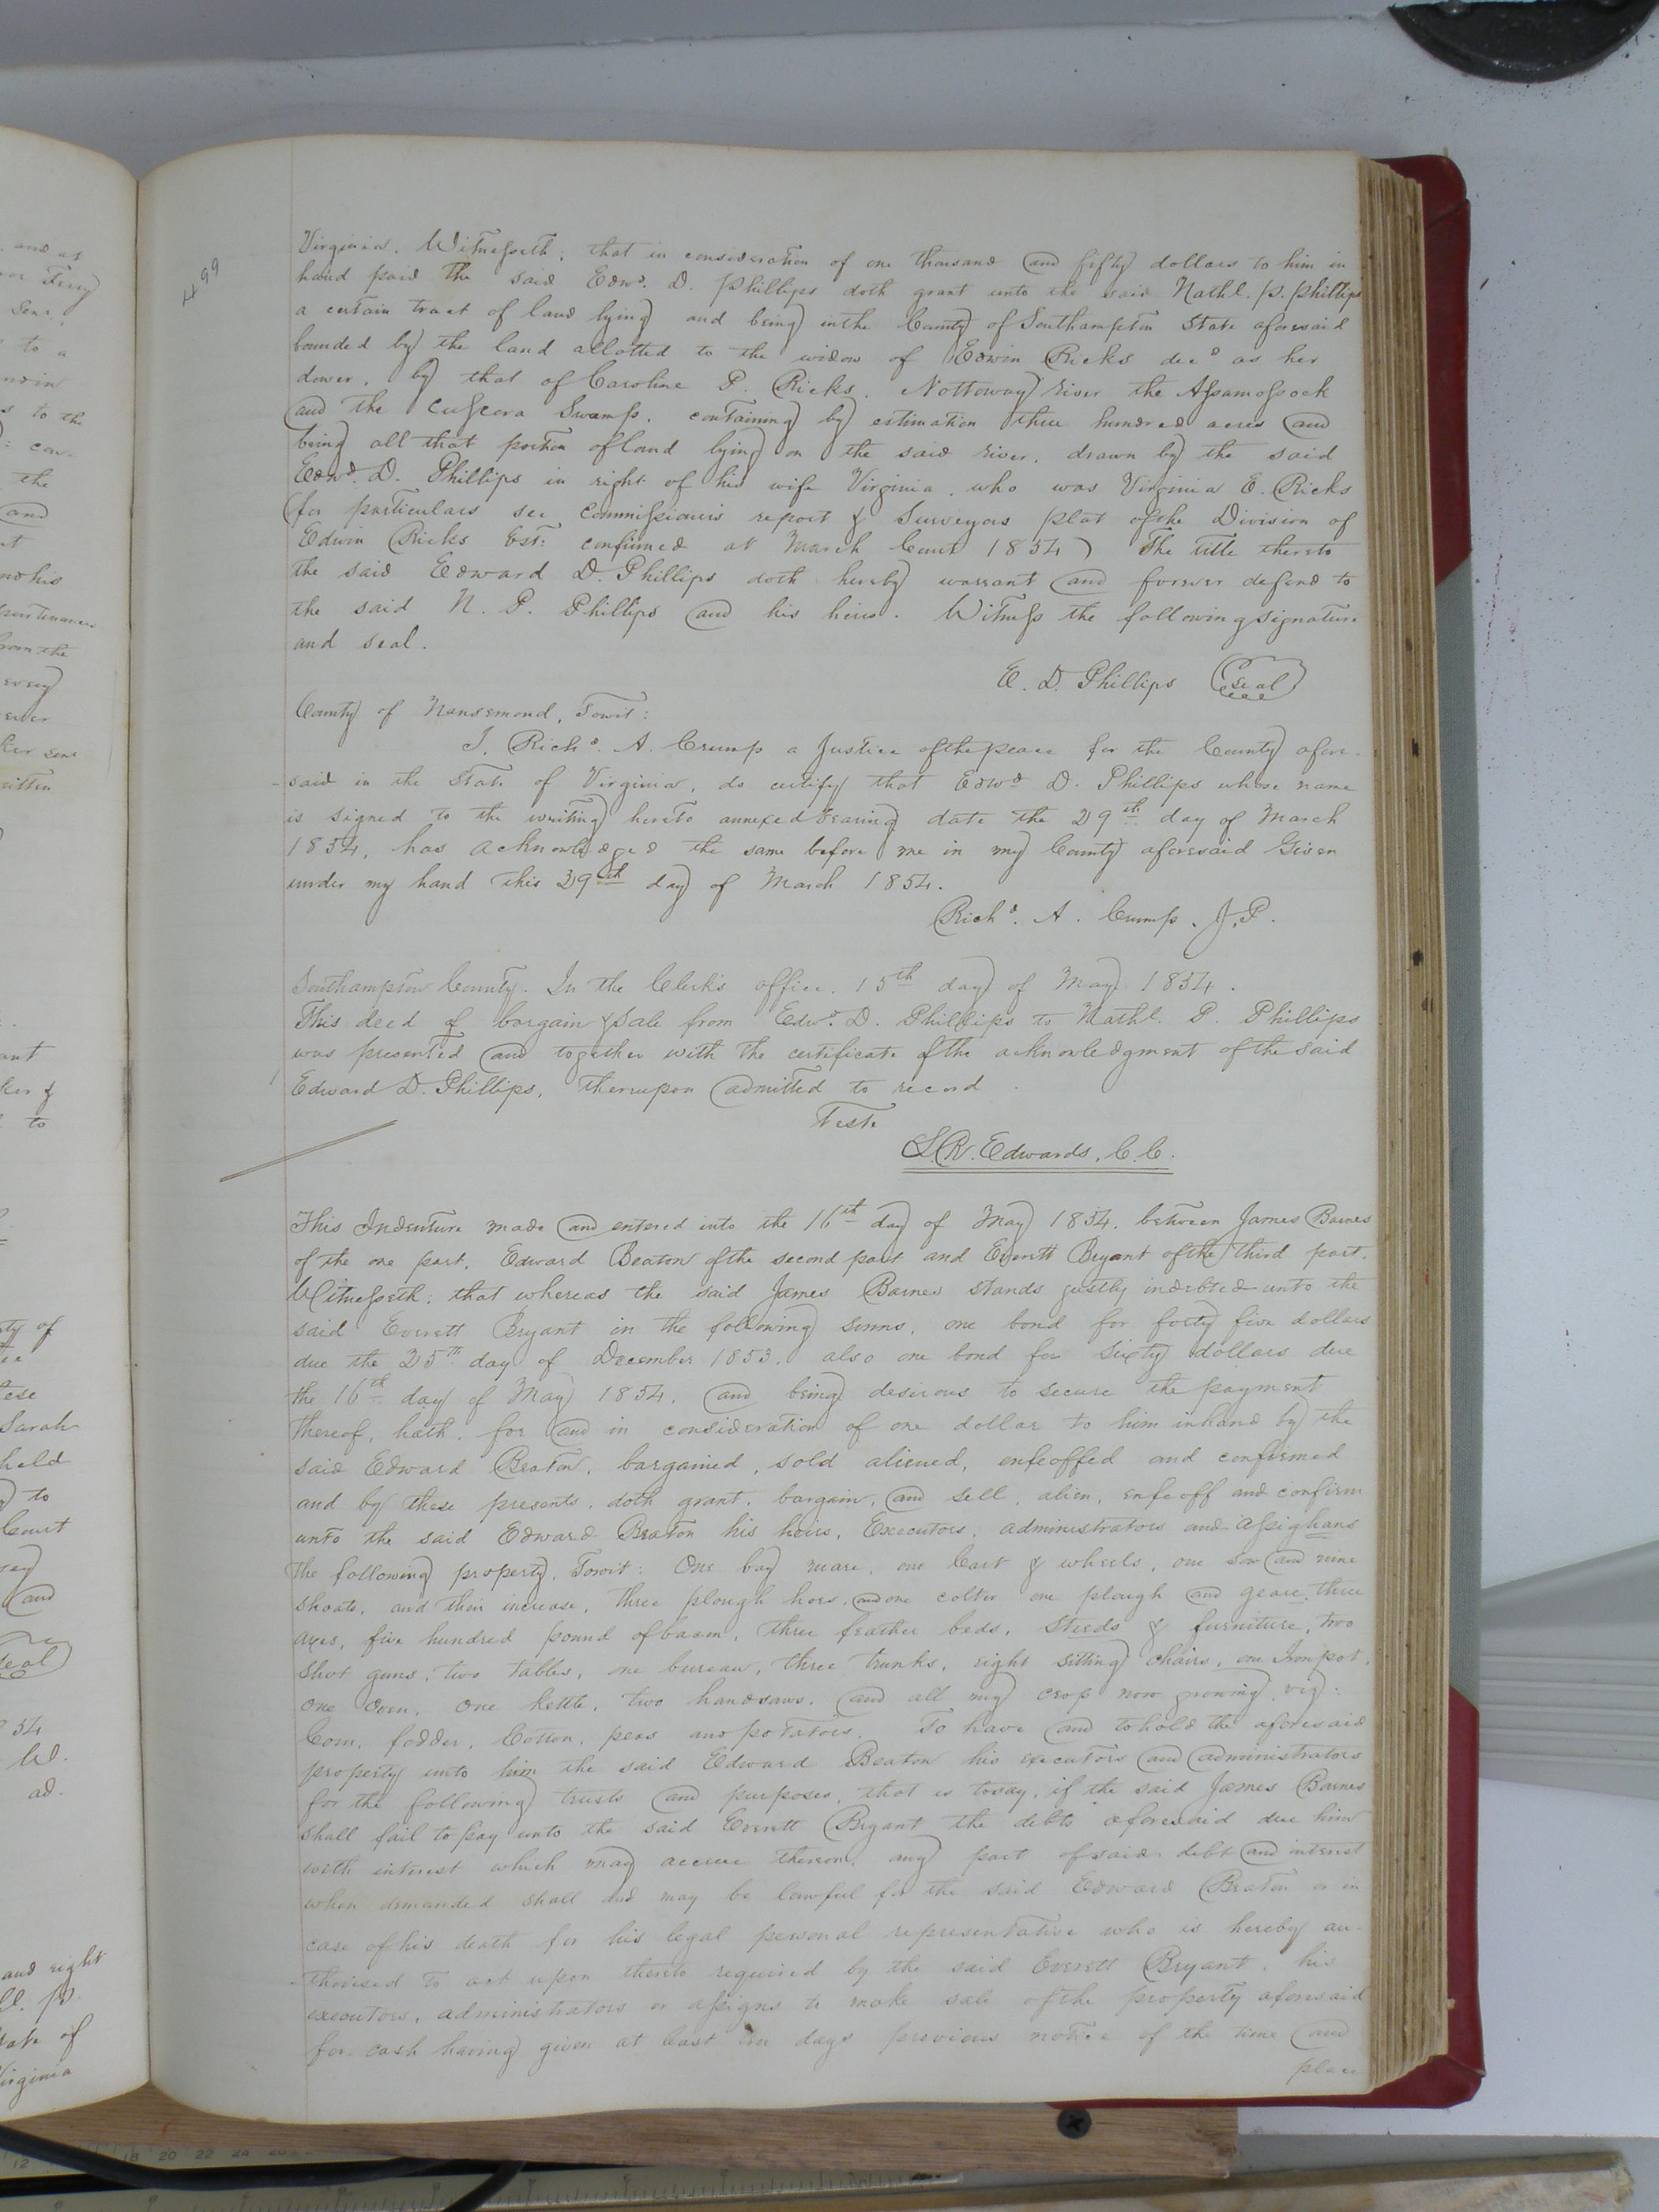 499
Virginia. Witnesseth; that in consideration of one thousand and fifty dollars to him in
hand paid the said Edwd. D. Phillips doth grant unto the said Nathl. P. Phillips
a certain tract of land lying and being in the County of Southampton State aforesaid
bounded by the land allotted to the widow of Edwin Ricks decd as her
dower, by that of Caroline P. Ricks, Nottoway river the Assamosock
and the Swamp, containing by estimation three hundred acres and
being all that portion of land lying on the said river, drawn by the said
Edwd. D. Phillips in right of his wife Virginia, who was Virginia E. Ricks
(for particulars see Commissioners report & Surveyors plat of the Division of
Edwin Ricks Est: confirmed at March Court 1854) The title thereto
the said Edward D. Phillips doth hereby warrant and forever defend to
the said N. P. Phillips and his heirs. Witness the following signature
and seal.
E. D. Phillips Seal
County of Nansemond, Towit:
I, Richd. A. Crump a Justice of the peace for the County afore-
-said in the State of Virginia, do certify that Edwd D. Phillips whose name
is signed to the writing hereto annexed bearing date the 29th day of March
1854, has acknowledged the same before me in my County aforesaid Given
under my hand this 29th day of March 1854.
Richd. A. Crump, J.P.
Southampton County. In the Clerk's office, 15th day of May 1854.
This deed of bargain & Sale from Edwd. D. Phillips to Nathl. P. Phillips
was presented and together with the certificate of the acknowledgment of the said
Edward D. Phillips, thereupon admitted to record.
Teste
L. R. Edwards, C. C.
This Indenture made and entered into the 16th day of May 1854, between James Barnes
of the one part, Edward Beaton of the second part and Everett Bryant of the third part.
Witnesseth; that whereas the said James Barnes stands justly indebted unto the
said Everett Bryant in the following sums, one bond for forty five dollars
due the 25th day of December 1853, also one bond for sixty dollars due
the 16th day of May 1854, and being desirous to secure the payment
thereof, hath, for and in consideration of one dollar to him in hand by the
said Edward Beaton, bargained, sold aliened, enfeoffed and confirmed
and by these presents, doth grant, bargain, and sell, alien, enfeoff and confirm
unto the said Edward Beaton his heirs, Executors, administrators and
the following property, Towit: One bay mare, one Cart & wheels, one sow and nine
shoats, and their increase, three plough hoes, and one colter one plough and geare, three
axes, five hundred pound of bacon, three feather beds, steeds & furniture, two
shot guns, two tables, one bureau, three trunks, eight sitting chairs, one Iron pot,
one Oven, one kettle, two handsaws, and all my crop now growing, viz:
Corn, fodder, Cotton, peas and potatoes. To have and to hold the aforesaid
property unto him the said Edward Beaton his executors and administrators
for the following trusts and purposes, that is to say, if the said James Barnes
shall fail to pay unto the said Everett Bryant the debts aforesaid due him
with interest which may accrue thereon, any part of said debt and interest
when demanded shall and may be lawful for the said Edward Beaton or in
case of his death for his legal personal representative who is hereby au-
-thorised to act upon thereto required by the said Everett Bryant, his
executors, administrators or assigns to make sale of the property aforesaid
for cash having given at least ten days previous notice of the time and
place